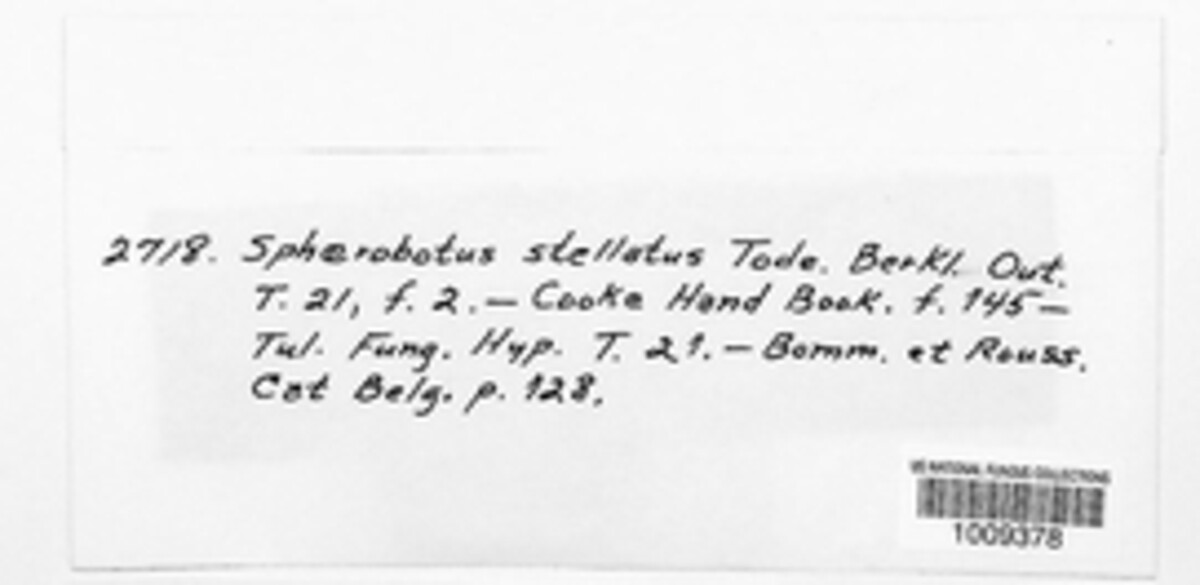 2718. Sphærobotus stellatus Tode. Berkl. Out.
T. 21, f. 2. — Cooke Hand Book. f. 145 —
Tul. Fung. Hyp. T. 21. — Bomm. et Rouss.
Cat Belg. p. 128.
US NATIONAL FUNGUS COLLECTIONS
1009378